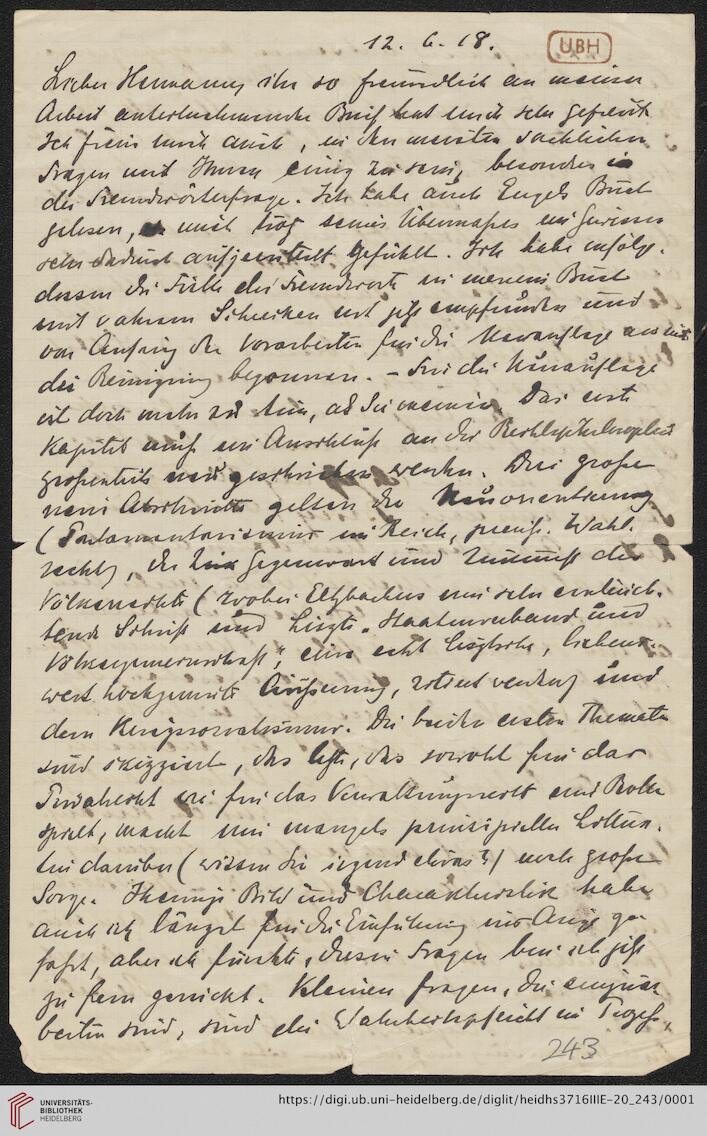 12. 6. 18.
UBH
Lieber Hermann, Ihr so freundlich an meiner
Arbeit Brief hat mich sehr gefreut.
Ich freue mich auch, in den meisten sachlichen
Fragen mit Ihnen einig zu sein, besonders in
der Fremdwörterfrage. Ich habe auch Engels Buch
gelesen, mich trotz seines Übermaßes im Gewissen
sehr dadurch aufgerüttelt gefühlt. Ich habe infolge-
dessen die Fülle der Fremdworte in meinem Buch
mit wahrem Schrecken erst jetzt empfunden und
von Anfang der Vorarbeiten für die Neuauflage an mit
der Reinigung begonnen. – Für die Neuauflage
ist doch mehr zu tun, als Sie meinen. Das erste
Kapitel muß im Anschluß an die Rechtsphilosophie
großenteils neu geschrieben werden. Drei große
neue Abschnitte gelten der Neuorientierung
(Parlamentarismus im Reich, preuß. Wahl-
recht), der Gegenwart und Zukunft des
Völkerrechts (wobei Eltzbachers mir sehr einleuch-
tende Schrift und Liszts „Staatenverband und
Völkergemeinschaft", eine echt Lisztsche, liebens-
wert Äußerung, und
dem Kriegssozialismus. Die beiden ersten Themata
sind skizziert, das letzte, das sowohl für das
Privatrecht wie für das Verwaltungsrecht eine Rolle
spielt, macht mir mangels prinzipieller Littera-
tur darüber (wissen Sie irgend etwas?) noch große
Sorge. Iherings Bild und Charakteristik habe
auch ich längst für die Einführung ins Auge ge-
faßt, aber ich fürchte, diesen Fragen bin ich jetzt
zu fern gerückt. Kleinere Fragen, die
sind, sind die Wahrheitspflicht im Prozeß,
243
UNIVERSITÄTS-
BIBLIOTHEK
HEIDELBERG
https://digi.ub.uni-heidelberg.de/diglit/heidhs3716IIIE-20_243/0001